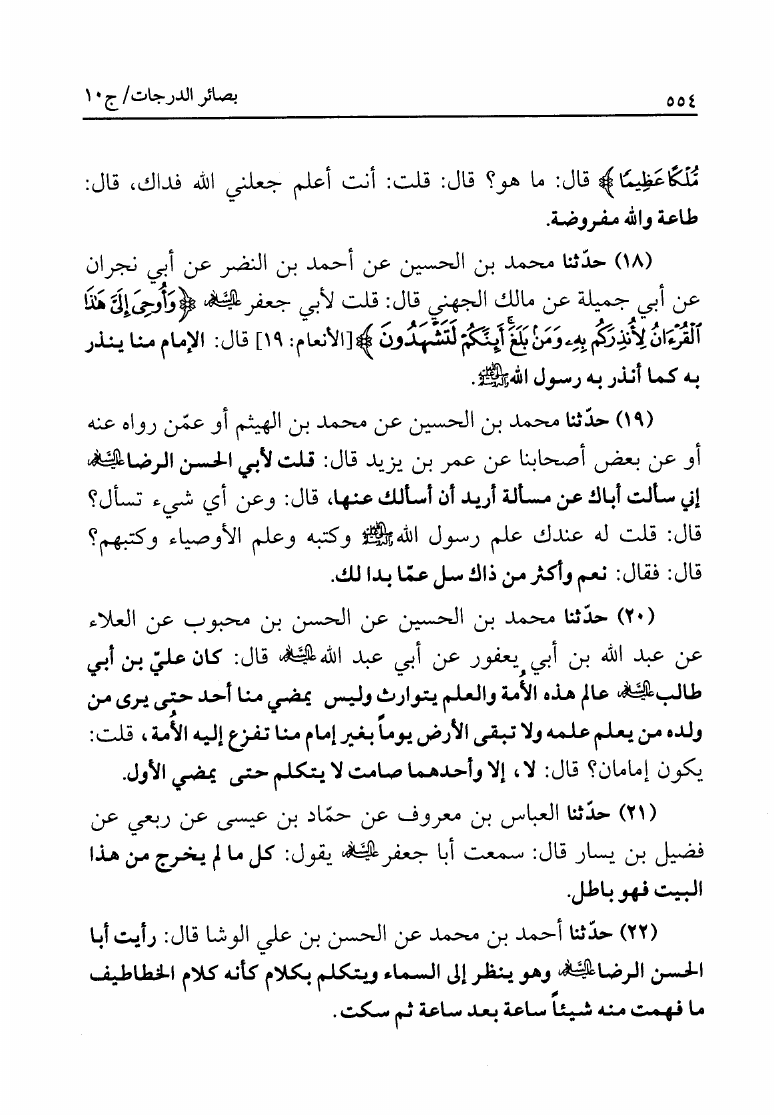 ٥٥٤
بصائر الدرجات/ ج١٠
مُّلْكًا عَظِيمًا﴾ قال: ما هو؟ قال: قلت: أنت أعلم جعلني الله فداك، قال:
طاعة والله مفروضة.
(١٨) حدّثنا محمد بن الحسين عن أحمد بن النضر عن أبي نجران
عن أبي جميلة عن مالك الجهني قال: قلت لأبي جعفر عليه السلام ﴿وَأُوحِيَ إِلَيَّ هَٰذَا
الْقُرْءَانُ لِأُنذِرَكُم بِهِۦ وَمَنۢ بَلَغَ ۚ أَئِنَّكُمْ لَتَشْهَدُونَ﴾ [الأنعام: ١٩] قال: الإمام منا ينذر
به كما أنذر به رسول الله ﷺ.
(١٩) حدّثنا محمد بن الحسين عن محمد بن الهيثم أو عمّن رواه عنه
أو عن بعض أصحابنا عن عمر بن يزيد قال: قلت لأبي الحسن الرضا عليه السلام
إني سألت أباك عن مسألة أريد أن أسألك عنها، قال: وعن أي شيء تسأل؟
قال: قلت له عندك علم رسول الله ﷺ وكتبه وعلم الأوصياء وكتبهم؟
قال: فقال: نعم وأكثر من ذاك سل عمّا بدا لك.
(٢٠) حدّثنا محمد بن الحسين عن الحسن بن محبوب عن العلاء
عن عبد الله بن أبي يعفور عن أبي عبد الله عليه السلام قال: كان عليّ بن أبي
طالب عليه السلام عالم هذه الأُمة والعلم يتوارث وليس يمضي منا أحد حتى يرى من
ولده من يعلم علمه ولا تبقى الأرض يوماً بغير إمام منا تفزع إليه الأُمة، قلت:
يكون إمامان؟ قال: لا، إلا وأحدهما صامت لا يتكلم حتى يمضي الأول.
(٢١) حدّثنا العباس بن معروف عن حمّاد بن عيسى عن ربعي عن
فضيل بن يسار قال: سمعت أبا جعفر عليه السلام يقول: كل ما لم يخرج من هذا
البيت فهو باطل.
(٢٢) حدّثنا أحمد بن محمد عن الحسن بن علي الوشا قال: رأيت أبا
الحسن الرضا عليه السلام وهو ينظر إلى السماء ويتكلم بكلام كأنه كلام الخطاطيف
ما فهمت منه شيئاً ساعة بعد ساعة ثم سكت.